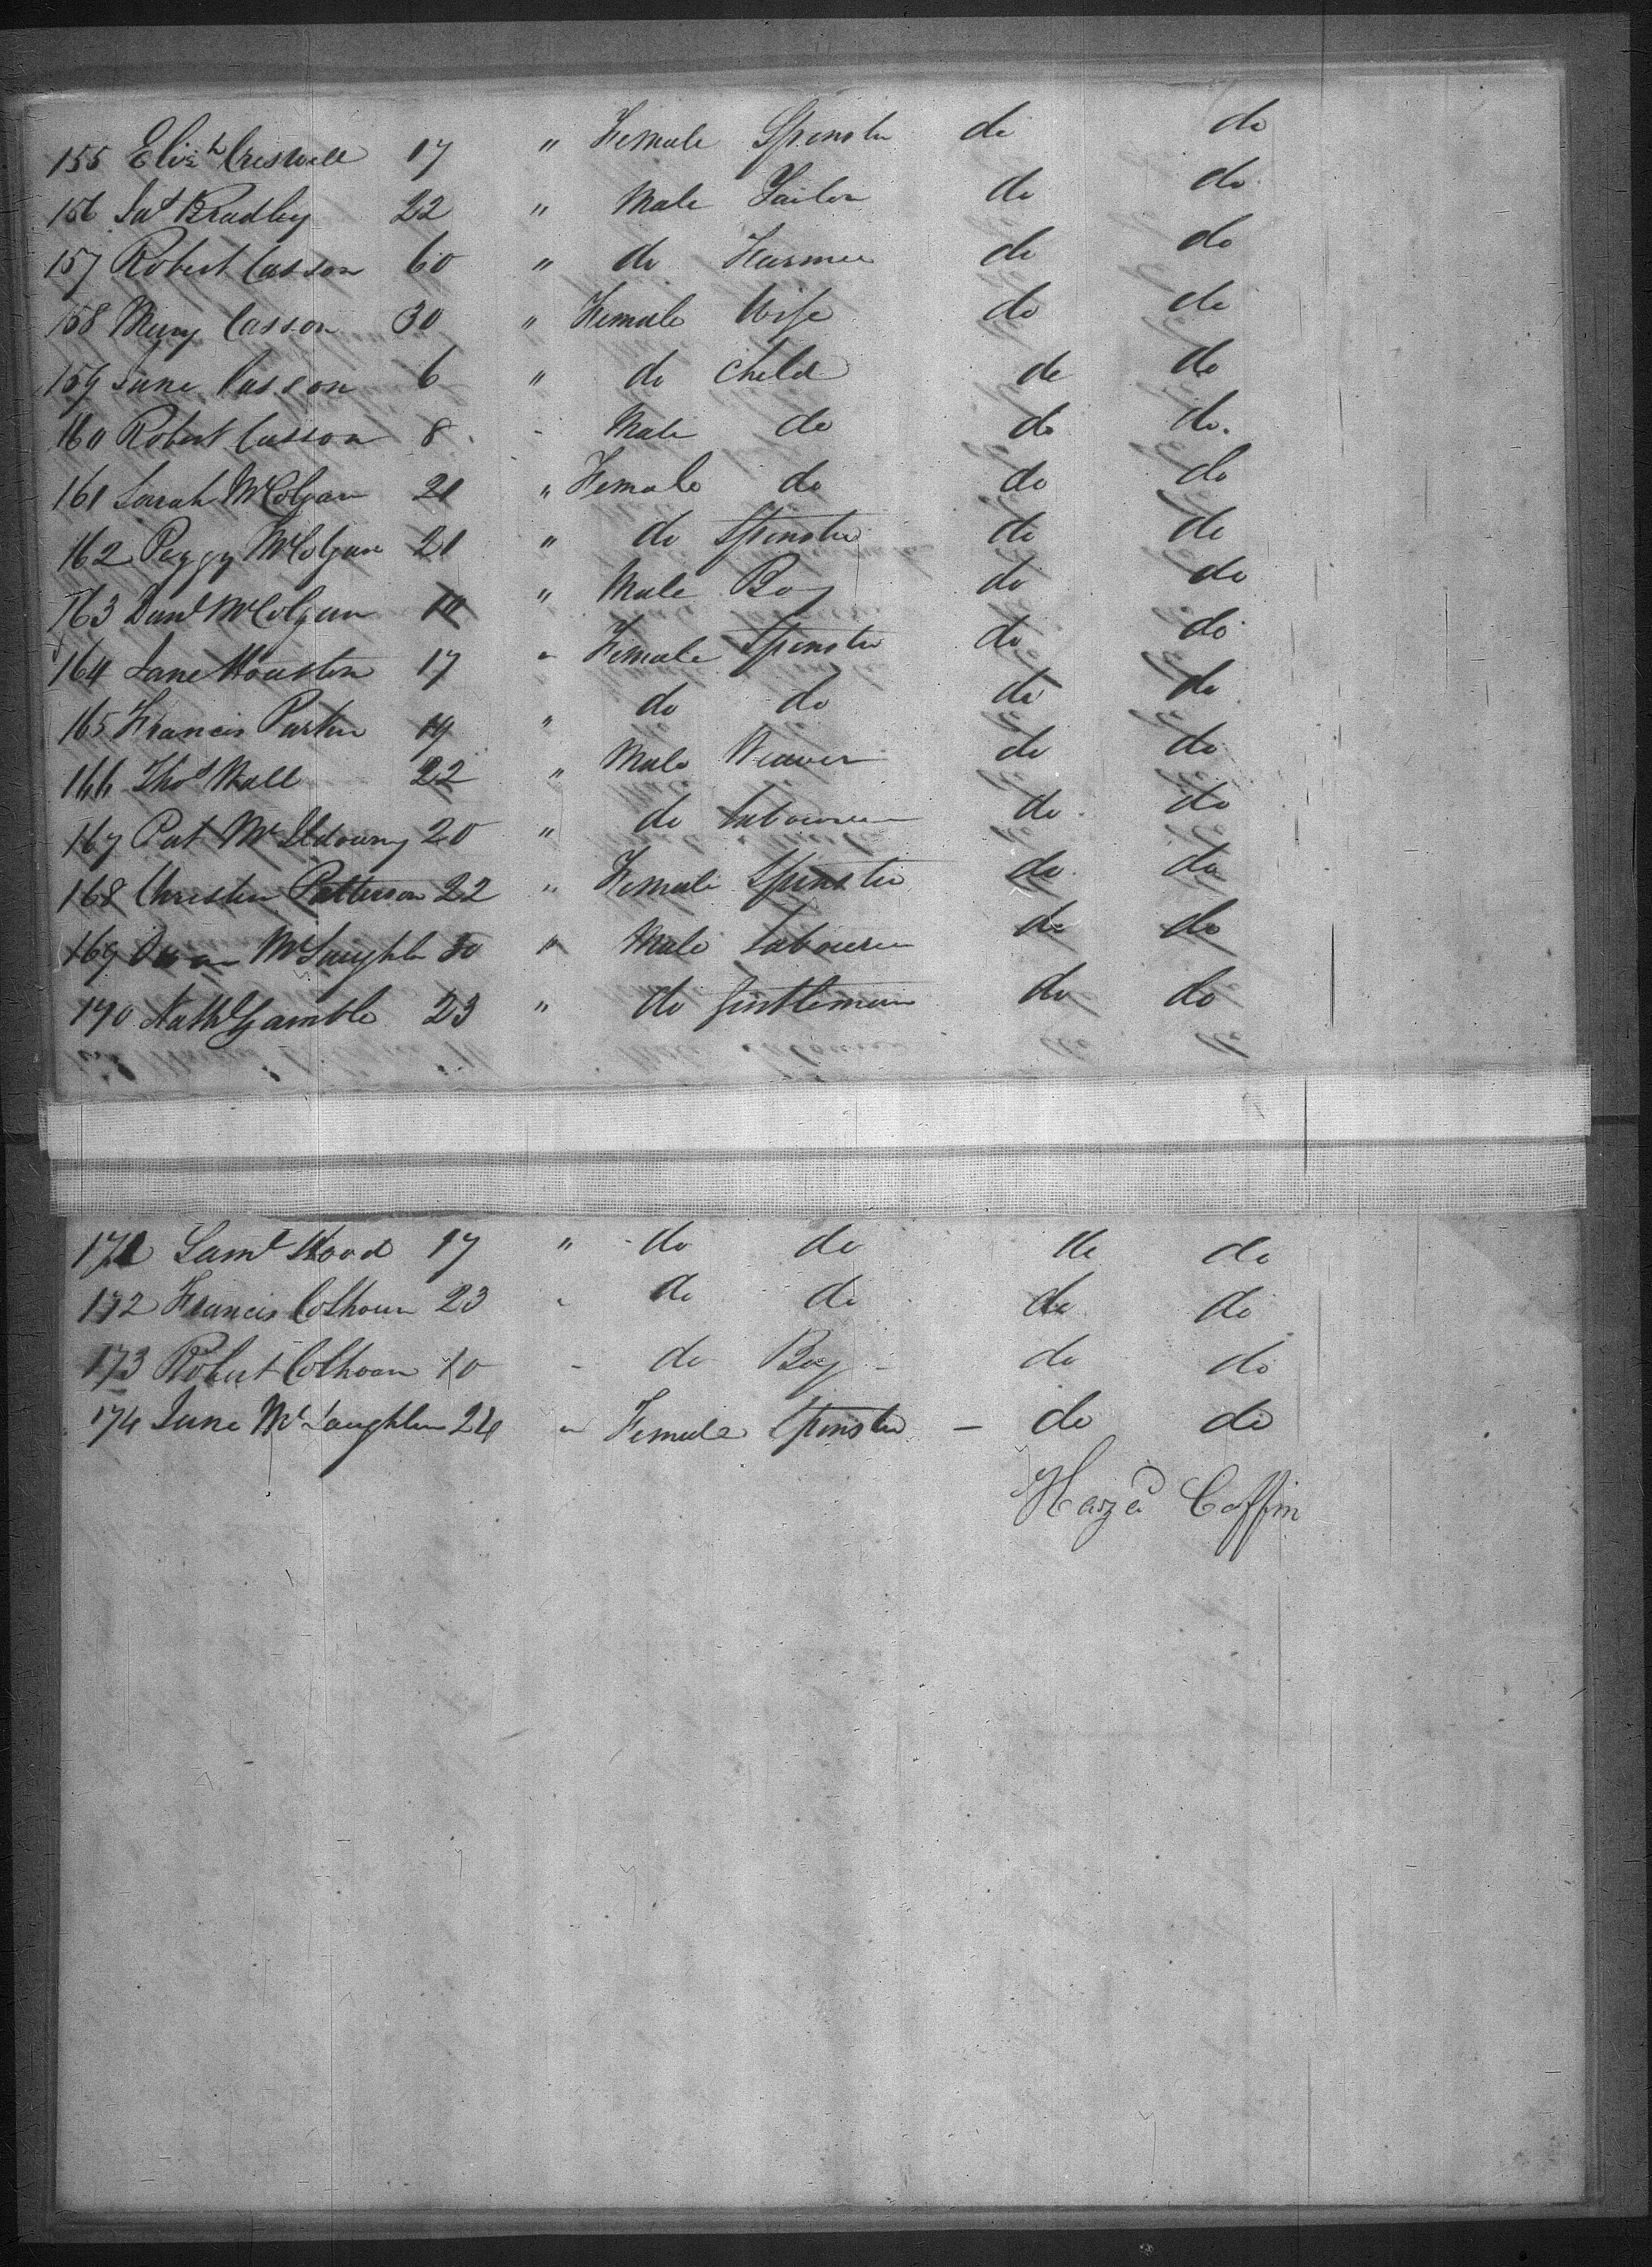 155 Elizh Creswell 17 " Female Spinster do do
156 Jas Bradley 22 " Male Tailor do do
157 Robert Casson 60 " do Farmer do do
158 Mary Casson 30 " Female Wife do do
159 Jane Casson 6 " do Child do do
160 Robert Casson 8 " Male do do do
161 Sarah McColgan 21 " Female do do do
162 Peggy McColgan 21 " do Spinster do do
163 Danl McColgan 10 " Male Boy do do
164 Jane Houston 17 " Female Spinster do do
165 Francis Parker 19 " do do do do
166 Thos Wall 22 " Male Weaver do do
167 Pat McIldowny 20 " do Labourer do do
168 Christin Patterson 22 " Female Spinster do do
169 Owan McLaughln 30 " Male Labourer do do
170 Nathl Gamble 23 " do Gentleman do do
171 Saml Hood 17 " do do do do
172 Francis Colhoun 23 " do do do do
173 Robert Colhoun 10 - do Boy - do do
174 Jane McLaughlin 24 " Female Spinster - do do
Hazd Coffin